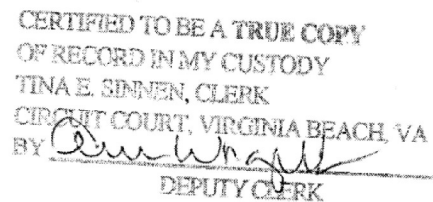 CERTIFIED TO BE A TRUE COPY
OF RECORD IN MY CUSTODY
TINA E. SINNEN, CLERK
CIRCUIT COURT, VIRGINIA BEACH, VA
BY
DEPUTY CLERK